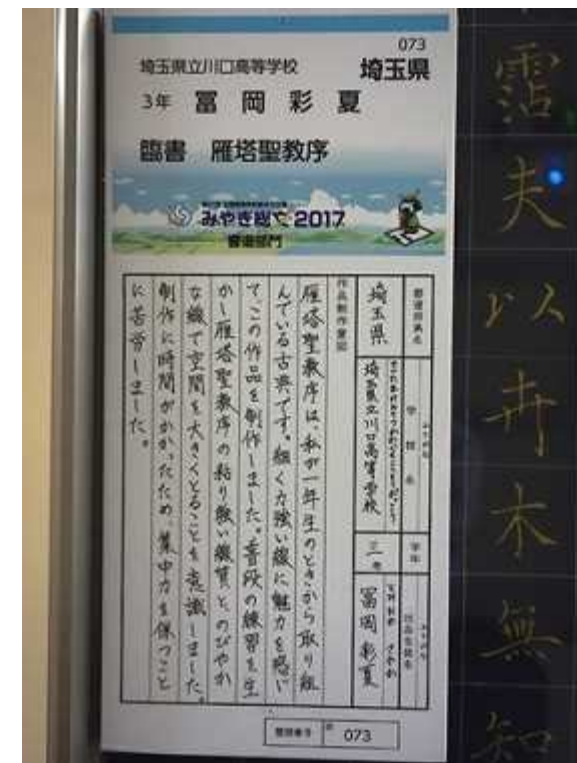 073
埼玉県立川口高等学校 埼玉県
3年 冨岡彩夏
臨書 雁塔聖教序
みやぎ総文2017
書道部門
都道府県名
埼玉県
学校名
埼玉県立川口高等学校
学年
三年
冨岡彩夏
作品制作意図
雁塔聖教序は、私が一年生のときから取り組
んでいる古典です。細く力強い線に魅力を感じ
て、この作品を制作しました。普段の練習を生
かし雁塔聖教序の粘り強い線質と、のびやか
な線で空間を大きくとることを意識しました。
制作に時間がかかったため、集中力を保つこと
に苦労しました。
整理番号 073
霑
夫
以
卉
木
無
知